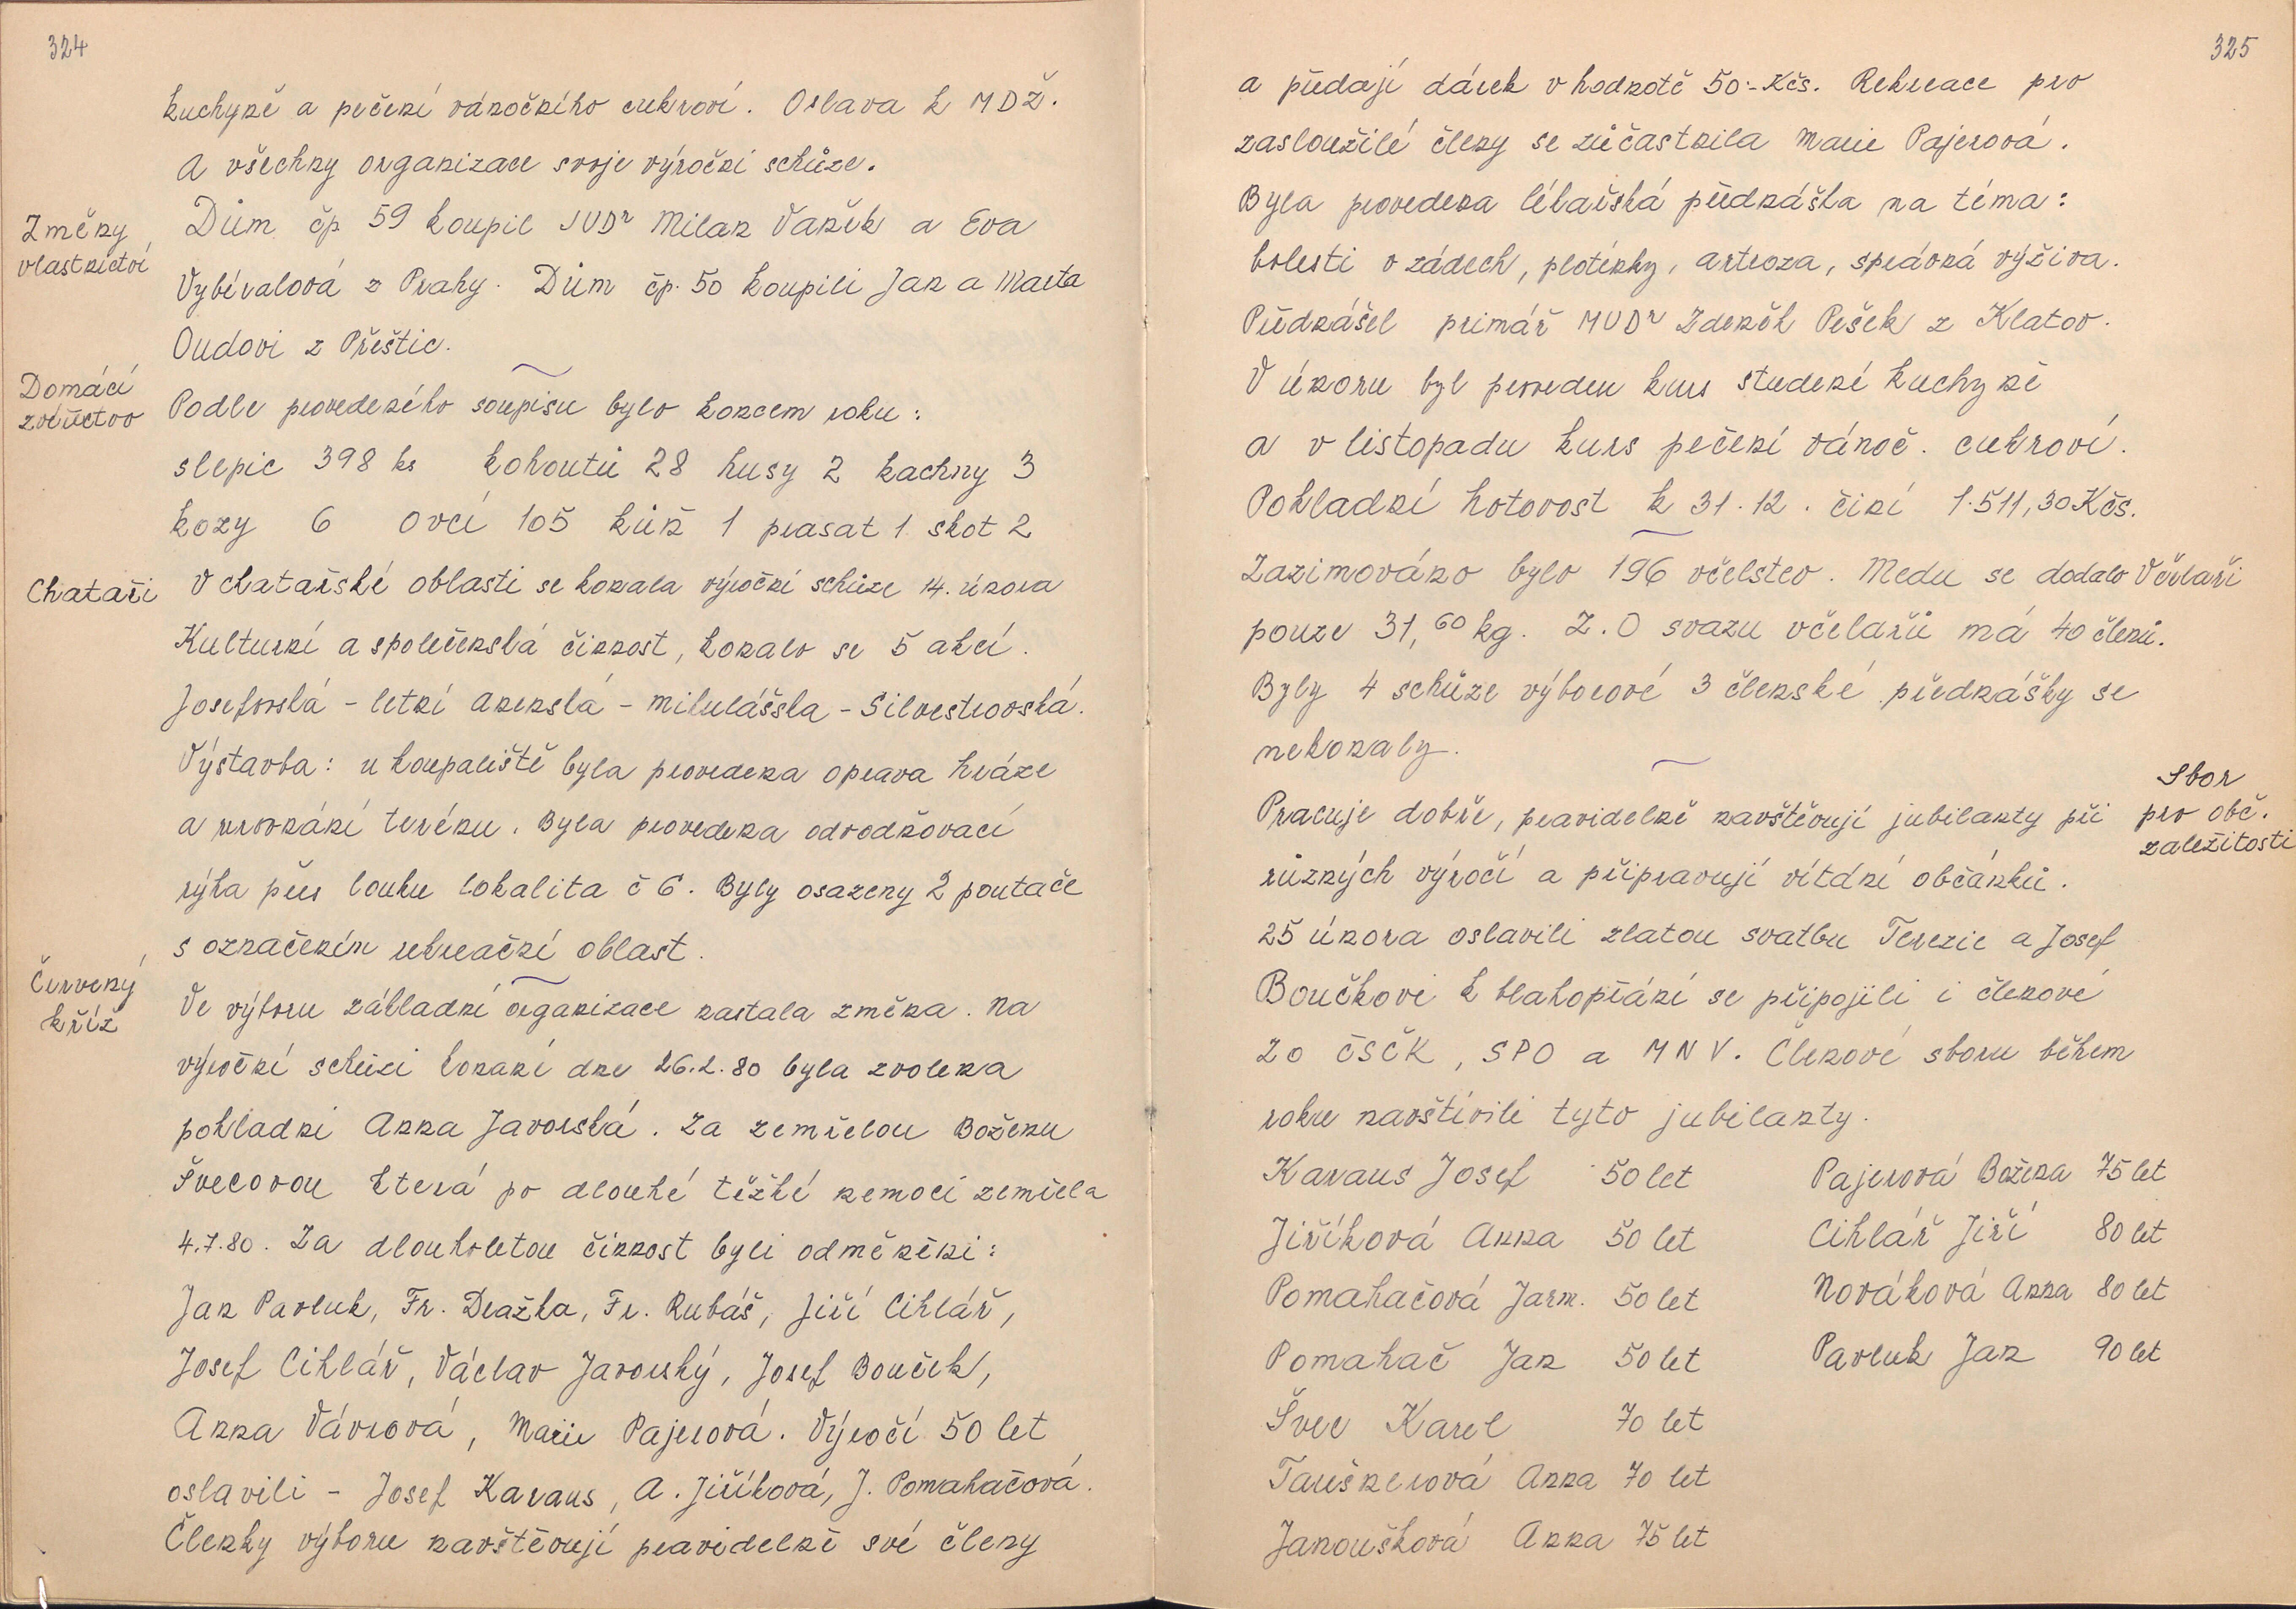 324
kuchyně a pečení vánočního cukroví. Oslava k MDŽ.
A všechny organizace svoje výroční schůze.
Změny
vlastnictví
Dům čp 59 koupil JUDr Milan Vaněk a Eva
Vybíralová z Prahy. Dům čp. 50 koupili Jan a Marta
Oudovi z Přeštic.
Domácí
zvířectvo
Podle provedeného soupisu bylo koncem roku:
slepic 398 ks kohoutů 28 husy 2 kachny 3
kozy 6 ovcí 105 kůň 1 prasat 1 skot 2
Chataři
V chatařské oblasti se konala výroční schůze 14. února
Kulturní a společenská činnost, konalo se 5 akcí.
Josefovská - letní arenská - mikulášská - Silvestrovská.
Výstavba: u koupaliště byla provedena oprava hráze
a urovnání terénu. Byla provedena odvodňovací
rýha přes louku lokalita č 6. Byly osazeny 2 poutače
s označením rekreační oblast.
Červený
kříž
Ve výboru základní organizace nastala změna. Na
výroční schůzi konané dne 26.2.80 byla zvolena
pokladní Anna Javorská. Za zemřelou Boženu
Švecovou která po dlouhé těžké nemoci zemřela
4.7.80. Za dlouholetou činnost byli odměněni:
Jan Pavluk, Fr. Dražka, Fr. Rubáš, Jiří Cihlář,
Josef Cihlář, Václav Javorský, Josef Bouček,
Anna Vávrová, Marie Pajerová. Výročí 50 let
oslavili - Josef Karaus, A. Jiříková, J. Pomahačová.
Členky výboru navštěvují pravidelně své členy
325
a předají dárek v hodnotě 50.- Kčs. Rekreace pro
zasloužilé členy se zúčastnila Marie Pajerová.
Byla provedena lékařská přednáška na téma:
bolesti v zádech, ploténky, artroza, správná výživa.
Přednášel primář MUDr Zdeněk Pešek z Klatov.
V únoru byl proveden kurs studené kuchyně
a v listopadu kurs pečení vánoč. cukroví.
Pokladní hotovost k 31.12. činí 1.511,30 Kčs.
Zazimováno bylo 196 včelstev. Medu se dodalo
Včelaři
pouze 31,60 kg. Z.O svazu včelařů má 40 členů.
Byly 4 schůze výborové 3 členské přednášky se
nekonaly.
Sbor
pro obč.
zaležitosti
Pracuje dobře, pravidelně navštěvují jubilanty při
různých výročí a připravují vítání občánků.
25 února oslavili zlatou svatbu Terezie a Josef
Boučkovi k blahopřání se připojili i členové
ZO ČSČK, SPO a MNV. Členové sboru během
roku navštívili tyto jubilanty.
Karaus Josef 50 let Pajerová Božena 75 let
Jiříková Anna 50 let Cihlář Jiří 80 let
Pomahačová Jarm. 50 let Nováková Anna 80 let
Pomahač Jan 50 let Pavluk Jan 90 let
Švec Karel 70 let
Taušnerová Anna 70 let
Janoušková Anna 75 let